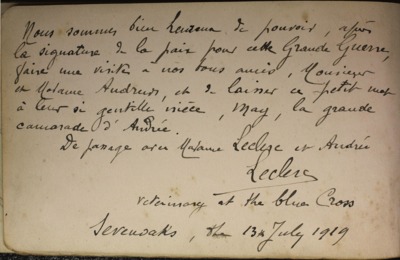 Nous sommes bien heureux de pouvoir, après
la signature de la paix pour cette Grande Guerre,
faire une visite à nos bons amis, Monsieur
et Madame Andrews, et de laisser ce petit mot
à leur si gentille nièce, May, la grande
camarade d'Andrée.
De passage avec Madame Leclerc et Andrée
Leclerc
veterinary at the blue Cross
Sevenoaks, the 13th July 1919